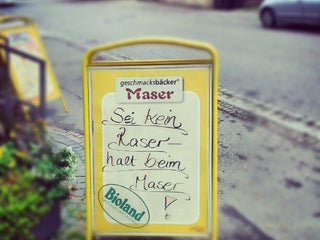 geschmacksbäcker®
Maser
Sei kein
Raser-
halt beim
Maser
!
Bioland